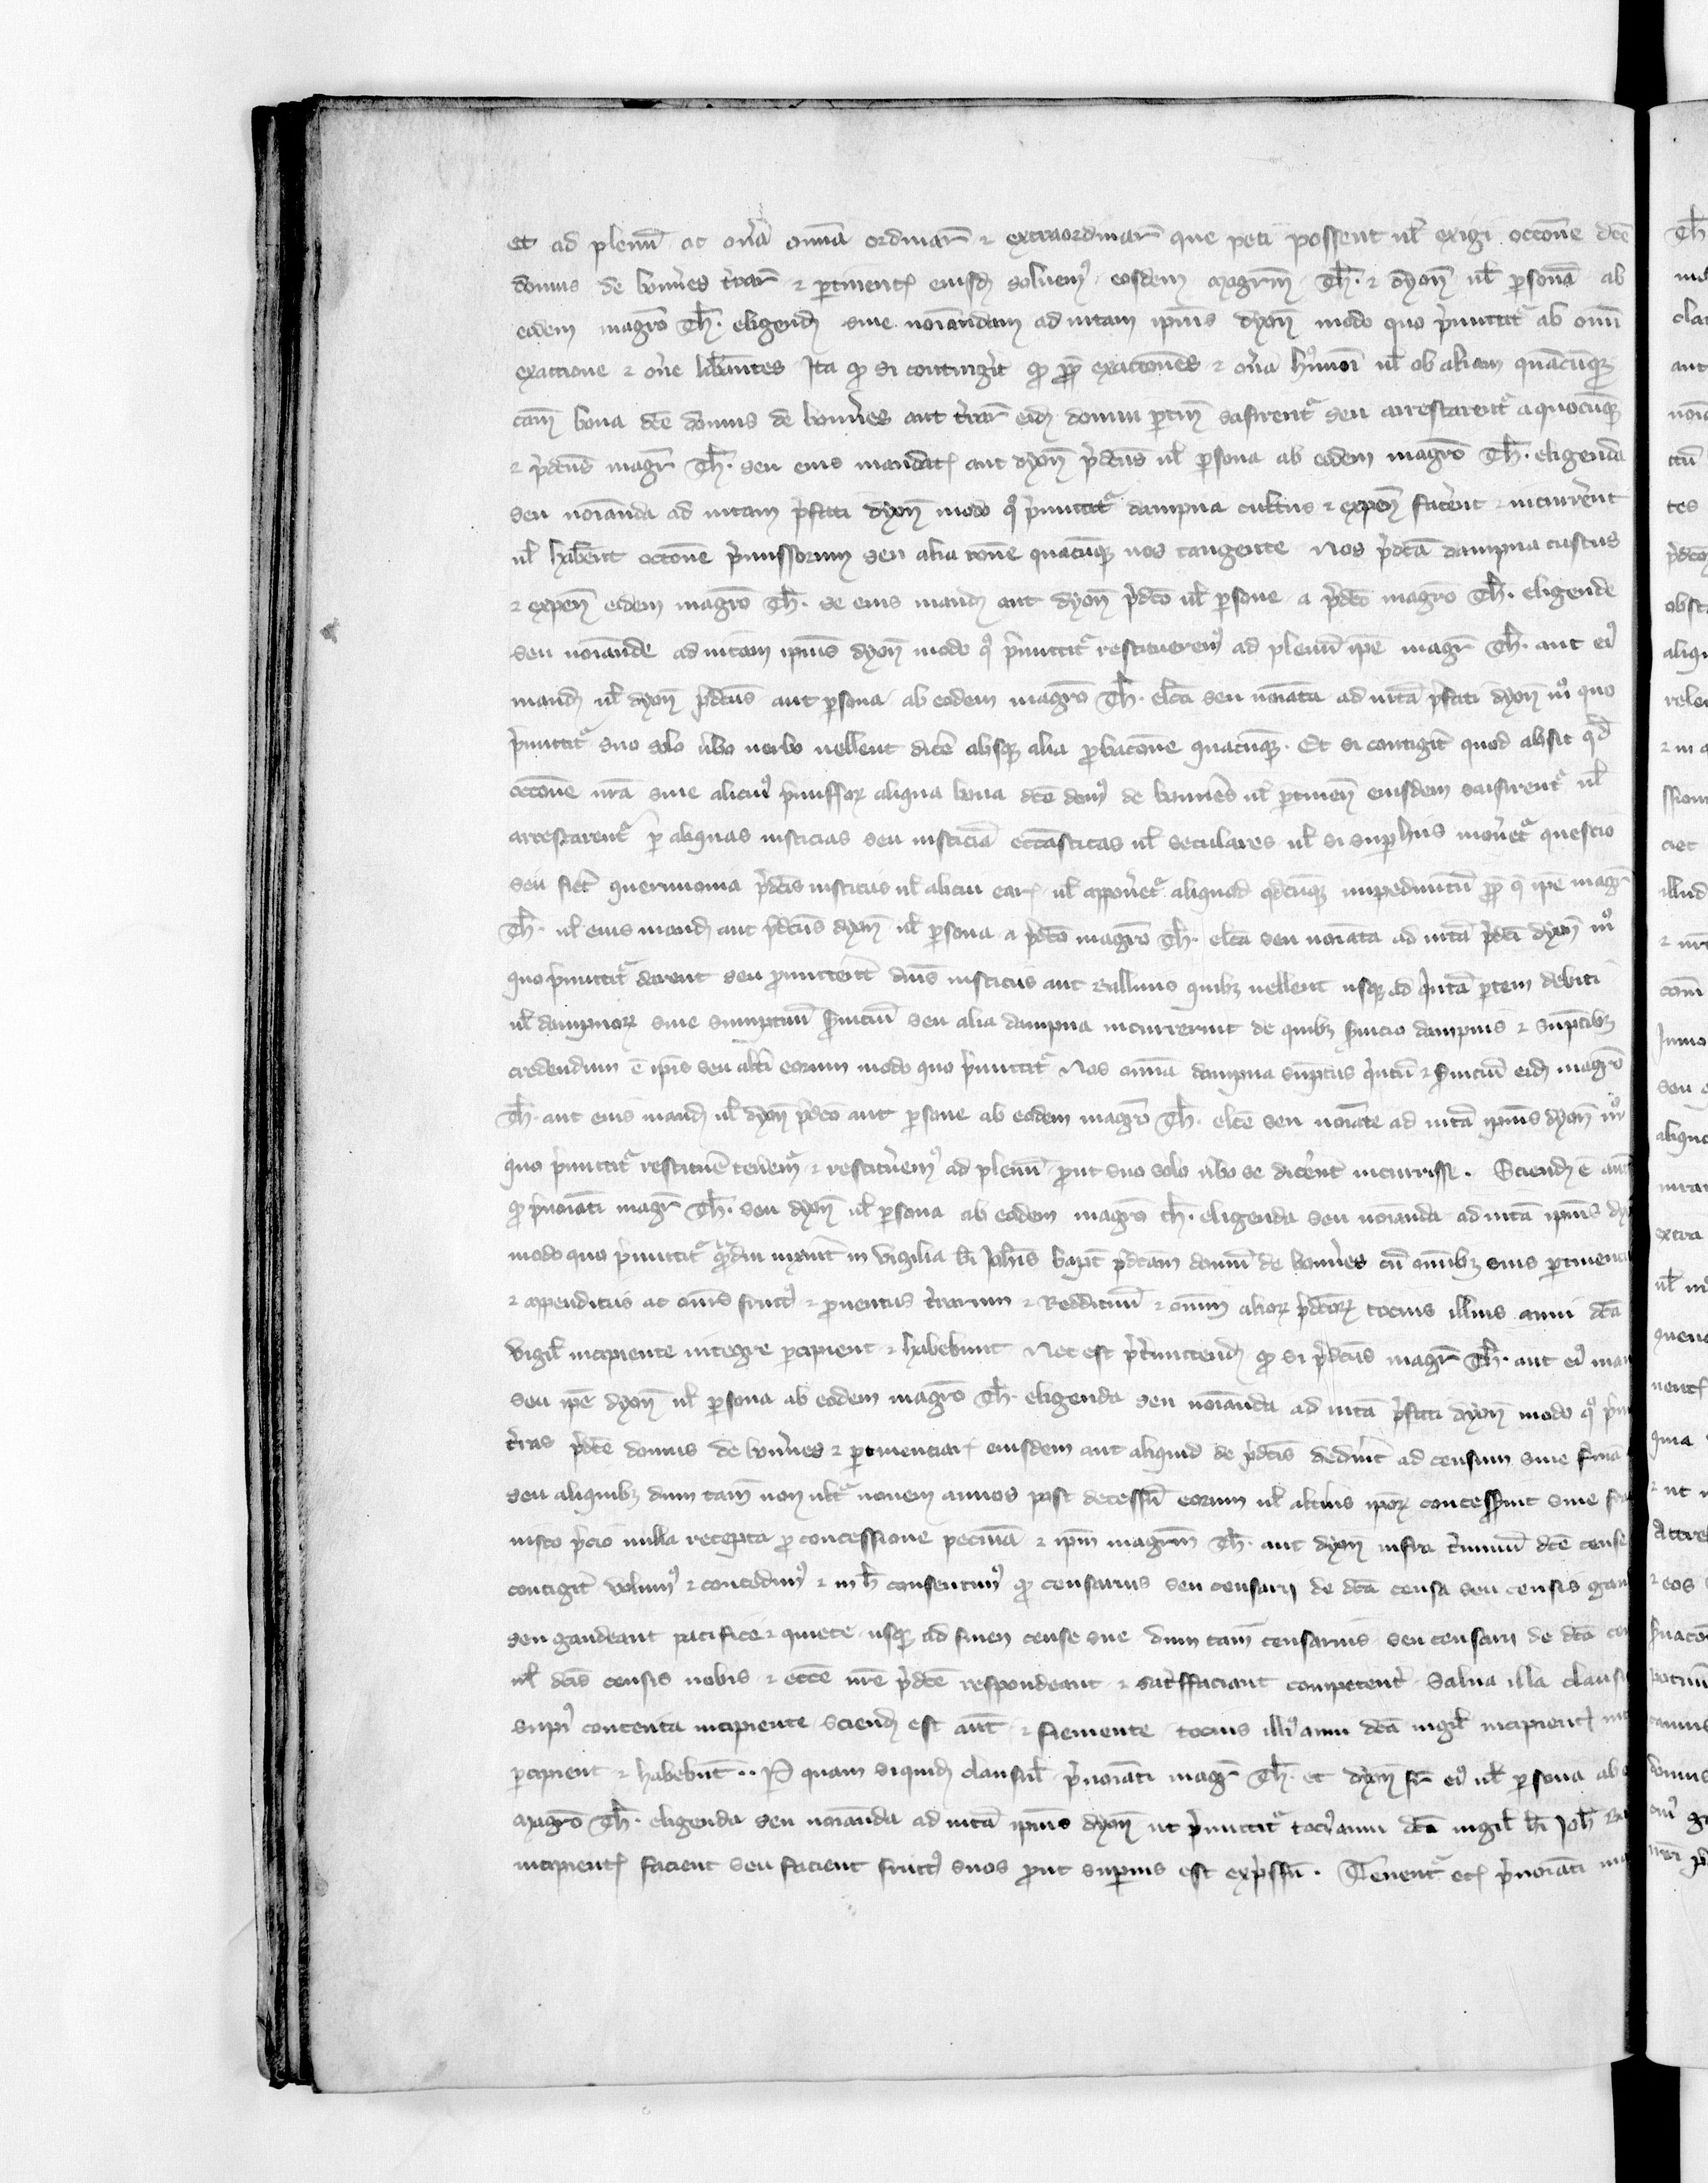 et ad plenū ac on̄a om̄ia ordinar̄ ⁊ extraordinar̄ que peti possent ul̄ exigi occōne dc̄e
domus de bonn̄es t̄rar̄ ⁊ ꝑtinent̄ eiusd̄ soluemꝰ eosdem magrm̄ Th̄. ⁊ dyon̄ ul̄ ꝑsonā ab
eodem magrō Th̄. eligend̄ siue noīandam ad uitam ipīus dyon̄ modo quo p̄mittit̄ ab omī
exactione ⁊ on̄e lib̄antes Ita ꝙ si contingēt ꝙ ꝓpt̄ exactiones ⁊ on̄a hꝰmōi ul̄ ob aliam quācūqꝫ
cām bona dc̄e domus de bonn̄es aut t̄rar̄ eid̄ domui ꝑtin̄ saisirent̄ seu arrestarent̄ a quocūqꝫ
⁊ p̄dc̄us magr̄ Th̄. seu eius mandat̄ aut dyon̄ p̄dc̄us ul̄ ꝑsona ab eodem magrō Th̄. eligenda
seu noīanda ad uitam p̄fati dyon̄ modo qͦ p̄mittit̄ dampna custus ⁊ expen̄ facerēt ⁊ incurrērt
ul̄ hab̄ent occōne p̄missorum seu alia rōne quacūqꝫ nos tangente Nos p̄dc̄a dampna custus
⁊ expen̄ eidem magrō Th̄. se eius mand̄ aut dyon̄ p̄dc̄o ul̄ ꝑsone a p̄dc̄o magrō Th̄. eligende
seu noīande ad uitam ipīus dyon̄ modo qͦ p̄mittit̄ restitueremꝰ ad plenū ip̄e magr̄ Th̄. aut eiꝰ
mand̄ ul̄ dyon̄ p̄dc̄us aut ꝑsona ab eodem magrō Th̄. elc̄a seu noīata ad uitā p̄fati dyon̄ mͦ quo
p̄mittit̄ suo solo ūbo uerbo uellent dicē absqꝫ alia ꝓbacōne quacūqꝫ. Et si contigit̄ quod absit qd̄
occōne nr̄a siue alicuiꝰ p̄missoꝝ aliqua bona dc̄e domꝰ de bonn̄es ul̄ ꝑtinen̄ eiusdem saisirent̄ ul̄
arrestarent̄ ꝑ aliquas iusticias seu iusticiā ecc̄asticas ul̄ seculares ul̄ si suꝑ hiis mou̇et̄ questio
seu fiet̄ querimonia p̄dc̄is iusticiis ul̄ alicui eaꝝ ul̄ appōnet̄ aliquod qdcūqꝫ impedimtū ꝓpt̄ qͦ ip̄e magr̄
Th̄. ul̄ eius mand̄ aut p̄dc̄us dyon̄ ul̄ ꝑsona a p̄dc̄o magrō Th̄. elc̄a seu noīata ad uitā p̄dc̄i dyon̄ mͦ
quo p̄mittit̄ darent seu ꝓmittent̄ diūs iusticiis aut balliuis quibꝫ uellent usqꝫ ad qͥntā ꝑtem debiti
ul̄ dampnoꝝ siue sumptuū s̄uiciū seu alia dampna incurrerint de quibꝫ s̄uicio dampnis ⁊ sūptibꝫ
credendum ē ip̄is seu alt̄i eorum modo quo p̄mittit̄ Nos om̄ia dampna sūptus qͥntū ⁊ s̄uiciū eid̄ magrō
Th̄. aut eius mand̄ ul̄ dyon̄ p̄dc̄o aut ꝑsone ab eodem magrō Th̄. elc̄e seu noīate ad uitā ipīus dyon̄ mͦ
quo p̄mittit̄ restituē tenem̄ ⁊ restitūemꝰ ad plenū ꝓut suo solo ūbo se dicēnt incurrisse. Sciend̄ ē aut̄
ꝙ p̄noīati magr̄ Th̄. seu dyon̄ ul̄ ꝑsona ab eodem magrō th̄. eligenda seu noīanda ad uitā ipīus dy
modo quo p̄mittit̄ qͣmdiu uixint̄ in vigilia bī Joh̄is bapt̄ p̄dc̄am domū de bonn̄es cū om̄ibꝫ suis ꝑtinenc
⁊ appenditiis ac om̄s fructꝰ ⁊ ꝓuentus t̄rarum ⁊ Reddituū ⁊ om̄m alioꝝ p̄dc̄oꝝ tocius illius anni dc̄a
vigil̄ incipiente integre ꝑcipient ⁊ habebunt Nec est p̄t̄mittend̄ ꝙ si p̄dc̄us magr̄ Th̄. aut eiꝰ man
seu ip̄e dyon̄ ul̄ ꝑsona ab eodem magrō Th̄. eligenda seu noīanda ad uitā p̄fati dyon̄ modo qͦ p̄m
t̄ras p̄dc̄e domus de bonn̄es ⁊ ꝑtinenciaꝝ eiusdem aut aliquid de p̄dc̄is dedint̄ ad censum siue firmā
seu aliquibꝫ dum tam̄ non ult̄ nouem annos post decessū eorum ul̄ alt̄ius ip̄oꝝ concesserint siue
iusto p̄cio nulla recepta ꝓ concessione pecunia ⁊ ip̄m magrm̄ Th̄. aut dyon̄ infra t̄minū dc̄e cense
contigit̄ volumꝰ ⁊ concedimꝰ ⁊ in h̄ consentimꝰ ꝙ censarius seu censarij de dc̄a censa seu censis gau
seu gaudeant pacifice ⁊ quiete usqꝫ ad finem cense sue dum tam̄ censarius seu censarij de dc̄a cen
ul̄ dc̄is censis nobis ⁊ ecc̄e nr̄e p̄dc̄e respondeant ⁊ satisfaciant competent̄ Salua illa claus
supiꝰ contenta incipiente sciend̄ est aut̄ ⁊ finiente tocius illiꝰ anni dc̄a uigil̄ incipient̄ int
ꝑcipient ⁊ habebūt.. Per quam siquid̄ clausul̄ p̄noīati magr̄ Th̄. et dyon̄ fr̄ eiꝰ ul̄ ꝑsona ab e
magrō Th̄. eligenda seu noīanda ad uitā ipīus dyon̄ ut p̄mittit̄ tociꝰ anni dc̄a uigil̄ bī Joh̄ Ba
incipient̄ faciet seu facient fructꝰ suos ꝓut suꝑius est exp̄ssū. Tenent̄ ec̄ p̄noīati ma